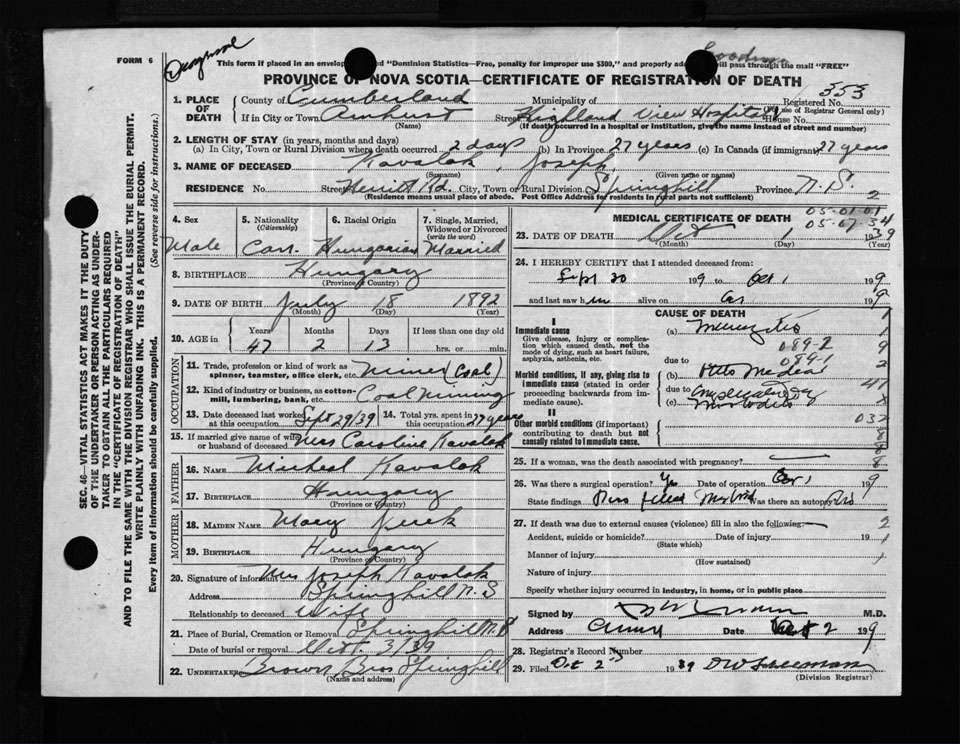 FORM 6
This form if placed in an envelope "Dominion Statistics—Free, penalty for improper use $300," and properly ad will pass through the mail "FREE"
PROVINCE OF NOVA SCOTIA—CERTIFICATE OF REGISTRATION OF DEATH
353
1. PLACE OF DEATH County of Cumberland Municipality of Registered No.
(For use of Registrar General only)
If in City or Town Amherst Street Highland View Hospital House No.
(Name) (If death occurred in a hospital or institution, give the name instead of street and number)
2. LENGTH OF STAY (in years, months and days)
(a) In City, Town or Rural Division where death occurred 2 days (b) In Province 27 years (c) In Canada (if immigrant) 27 years
3. NAME OF DECEASED Kavalak, Joseph
(Surname) (Given name or names)
RESIDENCE No. Street Herritt Rd. City, Town or Rural Division Springhill Province N.S.
(Residence means usual place of abode. Post Office Address for residents in rural parts not sufficient)
4. Sex
Male
5. Nationality
(Citizenship)
Can.
6. Racial Origin
Hungarian
7. Single, Married, Widowed or Divorced
(write the word)
Married
8. BIRTHPLACE Hungary
(Province or Country)
9. DATE OF BIRTH July 18 1892
(Month) (Day) (Year)
10. AGE in Years Months Days If less than one day old
47 2 13 hrs. or min.
OCCUPATION
11. Trade, profession or kind of work as spinner, teamster, office clerk, etc. Miner (Coal)
12. Kind of industry or business, as cotton-mill, lumbering, bank, etc. Coal Mining
13. Date deceased last worked at this occupation Sept 29/39 14. Total yrs. spent in this occupation 27 years
15. If married give name of wife or husband of deceased Mrs Caroline Kavalak
FATHER
16. NAME Micheal Kavalak
17. BIRTHPLACE Hungary
(Province or Country)
MOTHER
18. MAIDEN NAME Mary
19. BIRTHPLACE Hungary
(Province or Country)
20. Signature of informant Mrs Joseph Kavalak
Address Springhill N.S
Relationship to deceased Wife
21. Place of Burial, Cremation or Removal Springhill N.S
Date of burial or removal Oct. 3/39
22. UNDERTAKER Brown Bros Springhill
(Name and address)
2
MEDICAL CERTIFICATE OF DEATH
05-01-01
05-07-34
23. DATE OF DEATH Oct 1 1939
(Month) (Day) (Year)
24. I HEREBY CERTIFY that I attended deceased from:
Sept 30 199 to Oct 1 199
and last saw him alive on 199
CAUSE OF DEATH
I
Immediate cause
Give disease, injury or complication which caused death, not the mode of dying, such as heart failure, asphyxia, asthenia, etc.
(a) Meningitis
089-2
089-1
due to
Morbid conditions, if any, giving rise to immediate cause (stated in order proceeding backwards from immediate cause).
(b) Otitis Media
due to
(c) Mastoiditis
II
Other morbid conditions (if important) contributing to death but not causally related to immediate cause.
032
25. If a woman, was the death associated with pregnancy?
26. Was there a surgical operation? Yes Date of operation Oct 1 199
State findings Puss filled Mastoid Was there an autopsy?
27. If death was due to external causes (violence) fill in also the following:
Accident, suicide or homicide? Date of injury 19
(State which)
Manner of injury
(How sustained)
Nature of injury
Specify whether injury occurred in industry, in home, or in public place
Signed by M.D.
Address Date Oct 2 199
28. Registrar's Record Number
29. Filed Oct 2nd 1939
(Division Registrar)
SEC. 46—VITAL STATISTICS ACT MAKES IT THE DUTY
OF THE UNDERTAKER OR PERSON ACTING AS UNDER-
TAKER TO OBTAIN ALL THE PARTICULARS REQUIRED
IN THE "CERTIFICATE OF REGISTRATION OF DEATH"
AND TO FILE THE SAME WITH THE DIVISION REGISTRAR WHO SHALL ISSUE THE BURIAL PERMIT.
WRITE PLAINLY WITH UNFADING INK. THIS IS A PERMANENT RECORD.
Every item of information should be carefully supplied. (See reverse side for instructions.)